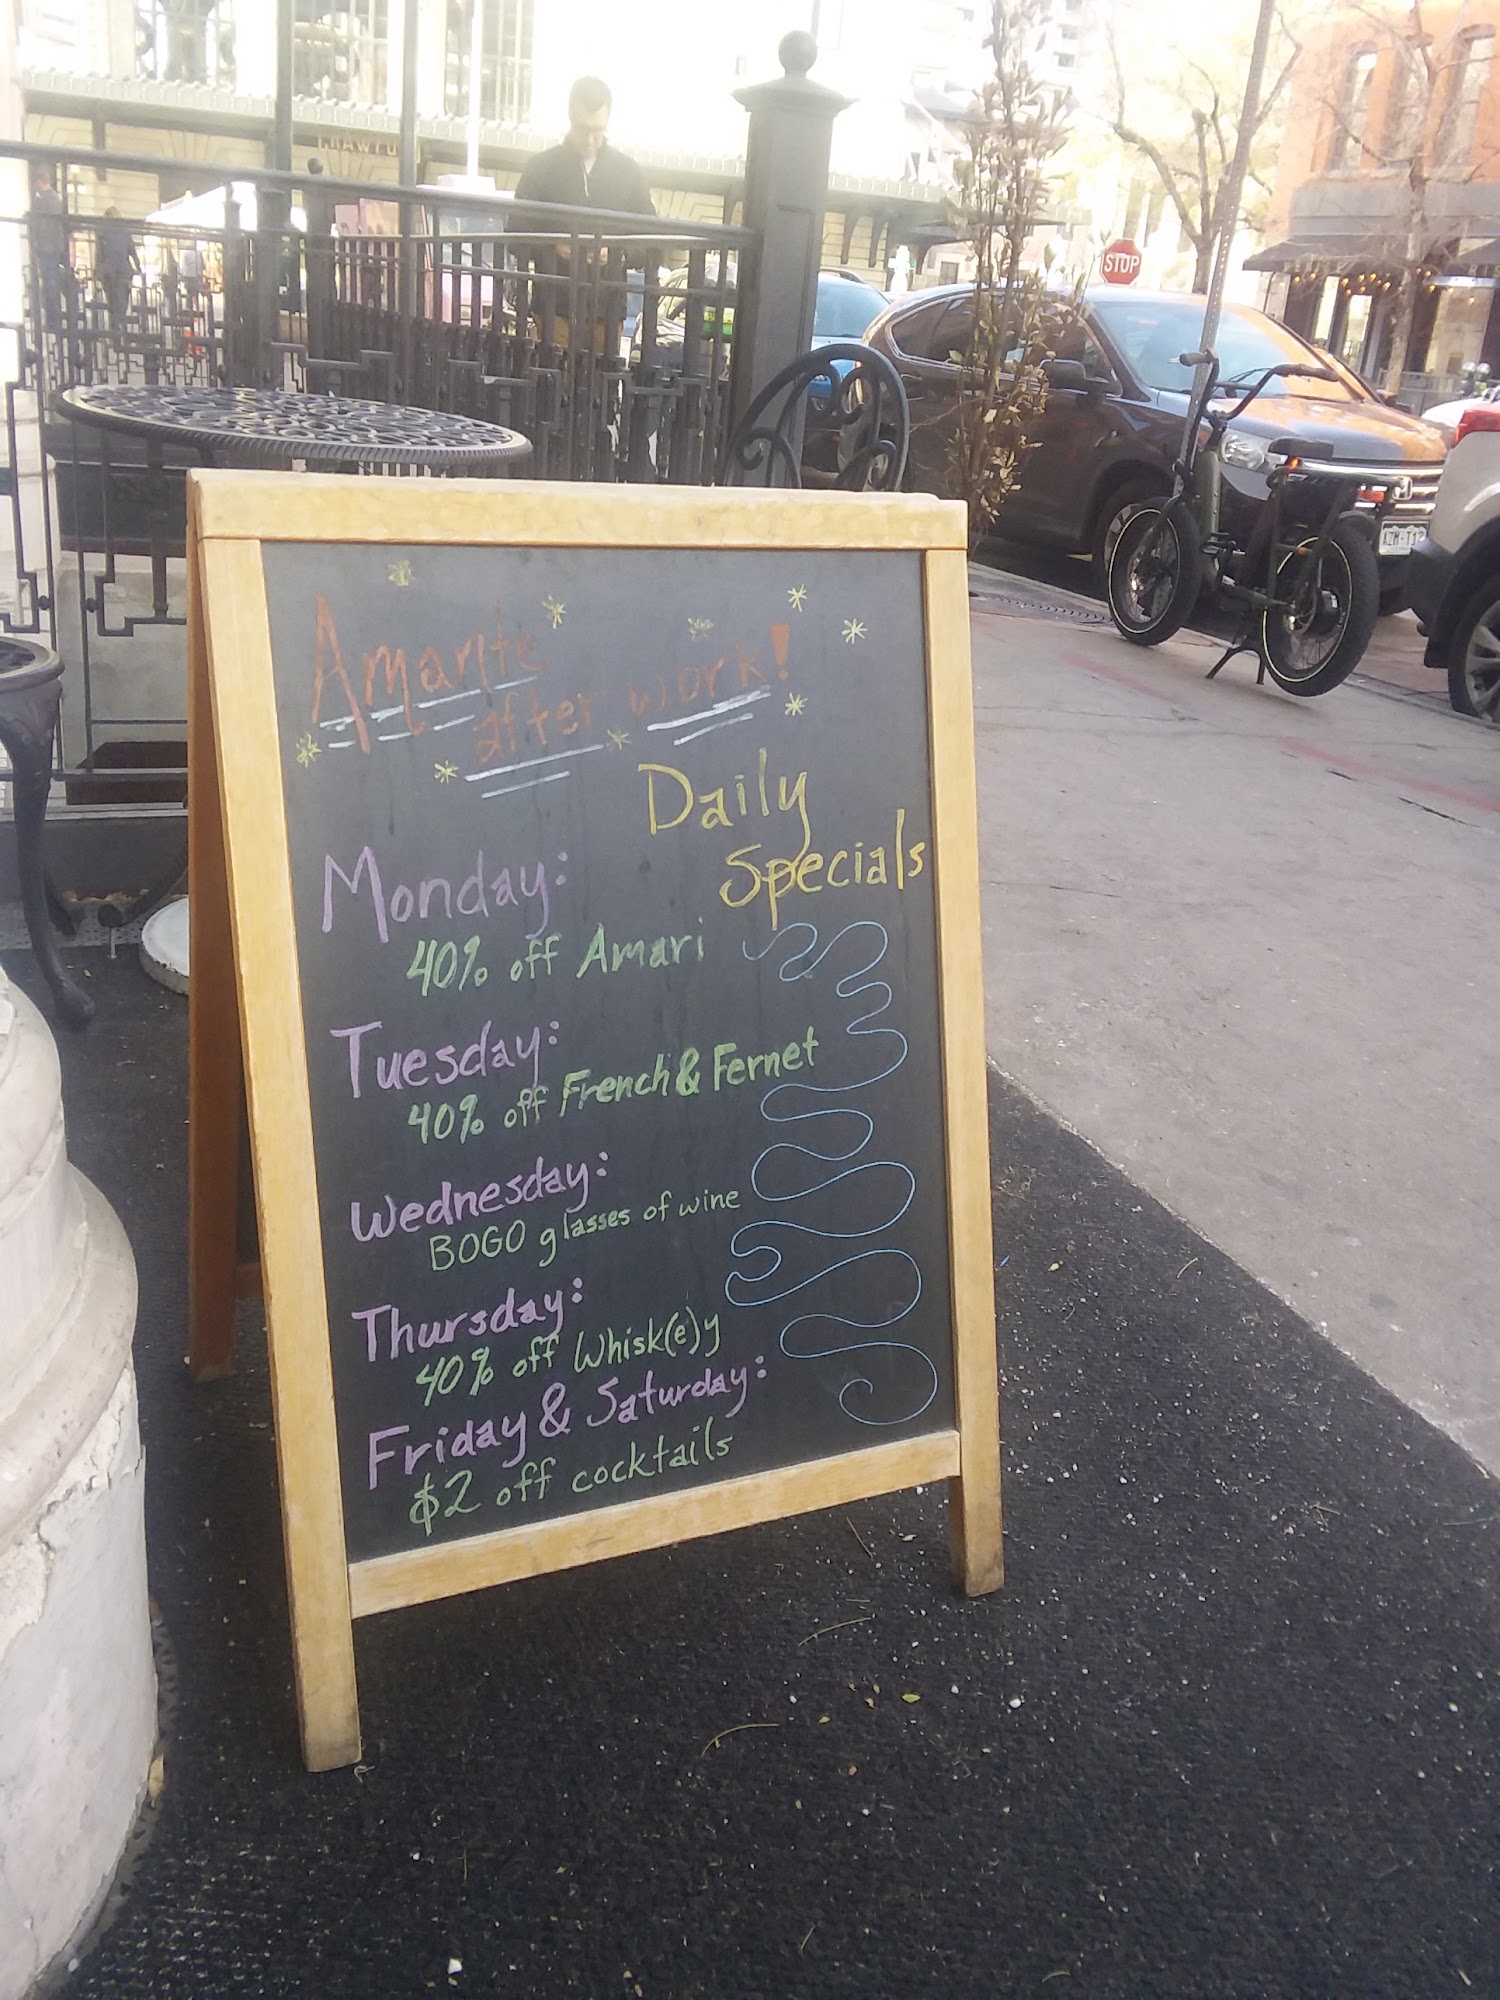 CRAWFORD
STOP
Amante
after work!
Daily
Specials
Monday:
40% off Amari
Tuesday:
40% off French & Fernet
Wednesday:
BOGO glasses of wine
Thursday:
40% off Whisk(e)y
Friday & Saturday:
$2 off cocktails